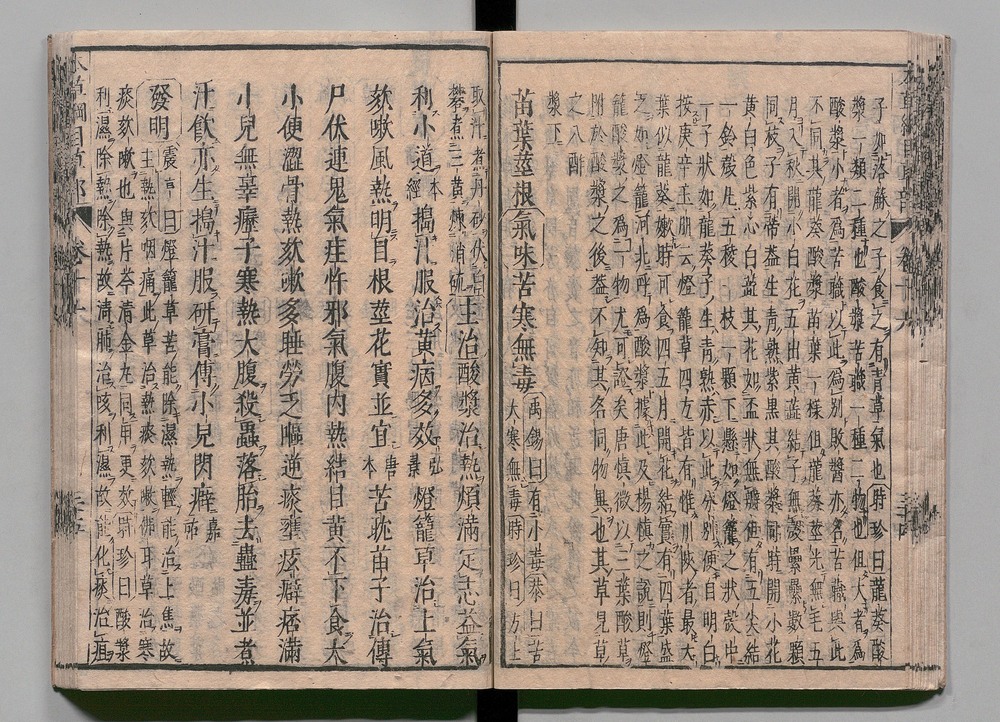 子亦落酥之子食之有青草氣也時珍曰龍葵酸
漿一類二種也酸漿苦蘵一種二物也但大者為
酸漿小者為苦蘵以此為別敗醬亦名苦蘵與此
不同其龍葵酸漿苗葉一樣但龍葵莖光無毛五
月入秋開小白花五出黃蕊結子無殼纍纍數顆
同枝子有蒂蓋生青熟紫黑其酸漿同時開小花
黃白色紫心白蕊其花如盃狀無瓣但有五尖結
一鈴殼凡五稜一枝一顆下懸如燈籠之狀殼中
一子狀如龍葵子生青熟赤以此分別便自明白
按庚辛玉冊云燈籠草四方皆有惟川陝者最大
葉似龍葵嫩時可食四五月開花結實有四葉盛
之如燈籠河北呼為酸漿據此及楊慎之說則燈
籠酸漿之為一物尤可證矣唐慎微以三葉酸草
附於酸漿之後蓋不知其名同物異也其草見草
之八酢
漿下
苗葉莖根氣味苦寒無毒禹錫曰有小毒恭曰苦
大寒無毒時珍曰方士
取汁煮丹砂伏白
礬煮三黃煉消硫主治酸漿治熱煩滿定志益氣
利小道本
經搗汁服治黃病多效弘
景燈籠草治上氣
欬嗽風熱明目根莖花實並宜唐
本苦耽苗子治傳
尸伏連鬼氣疰忤邪氣腹內熱結目黃不下食大
小便澀骨熱欬嗽多睡勞乏嘔逆痰壅痃癖痞滿
小兒無辜癧子寒熱大腹殺蟲落胎去蠱毒並煮
汁飲亦生搗汁服研膏傅小兒閃癖嘉
祐
發明震亨曰燈籠草苦能除濕熱輕能治上焦故
主熱欬咽痛此草治熱痰欬嗽佛耳草治寒
痰欬嗽也與片芩清金丸同用更效時珍曰酸漿
利濕除熱除熱故清肺治咳利濕故能化痰治疽